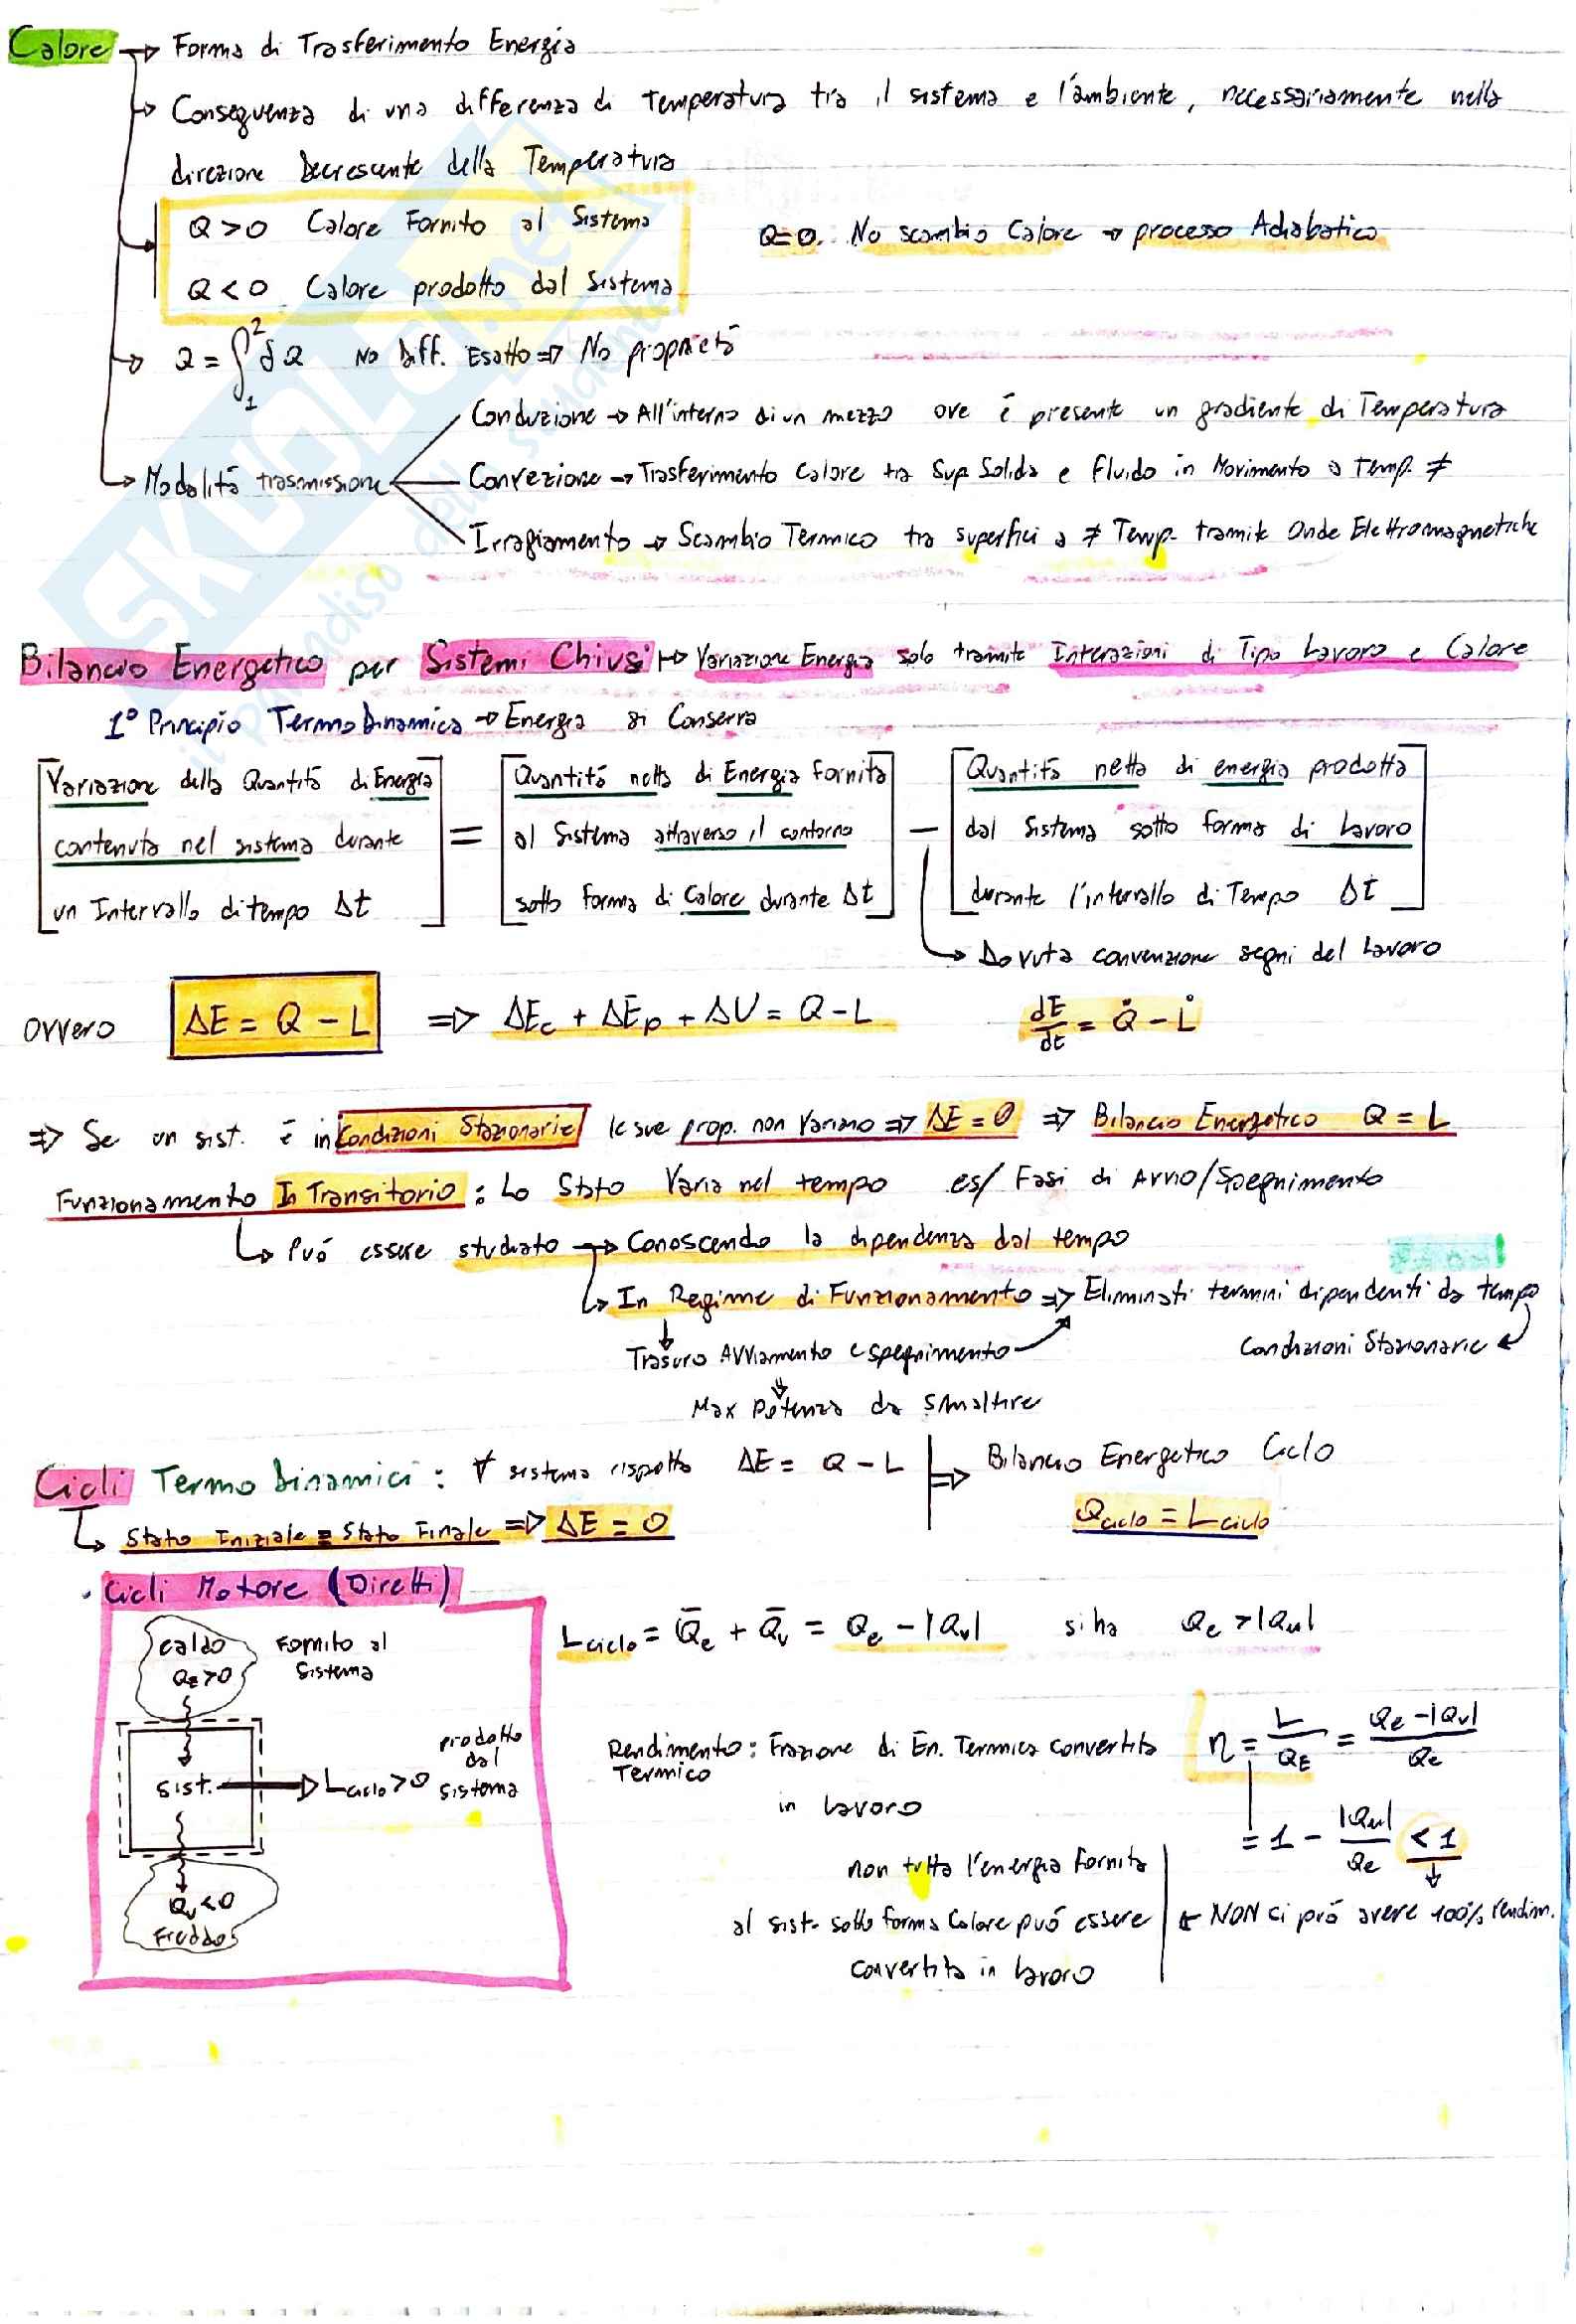 Calore → Forma di Trasferimento Energia
→ Conseguenza di una differenza di Temperatura tra il sistema e l'ambiente, necessariamente nella
direzione Decrescente della Temperatura
Q > 0 Calore Fornito al Sistema
Q=0. No scambio Calore → processo Adiabatico
Q < 0 Calore prodotto dal Sistema
→ Q = ∫₁² δQ No Diff. Esatto ⇒ No proprietà
Conduzione → All'interno di un mezzo ove è presente un gradiente di Temperatura
→ Modalità trasmissione
Convezione → Trasferimento Calore tra Sup Solida e Fluido in Movimento a Temp. ≠
Irragiamento → Scambio Termico tra superfici a ≠ Temp. tramite Onde Elettromagnetiche
SKUOLA.net
il paradiso dello studente
Bilancio Energetico per Sistemi Chiusi → Variazione Energia solo tramite Interazioni di Tipo Lavoro e Calore
1° Principio TermoDinamica → Energia si Conserva
[Variazione della Quantità di Energia contenuta nel sistema durante un Intervallo di tempo Δt] = [Quantità netta di Energia fornita al Sistema attraverso il contorno sotto forma di Calore durante Δt] − [Quantità netta di energia prodotta dal Sistema sotto forma di Lavoro durante l'intervallo di Tempo Δt]
→ Dovuta convenzione segni del Lavoro
ovvero ΔE = Q − L ⇒ ΔEc + ΔEp + ΔU = Q − L dE/dt = Q̇ − L̇
⇒ Se un sist. è in Condizioni Stazionarie le sue prop. non Variano ⇒ ΔE = 0 ⇒ Bilancio Energetico Q = L
Funzionamento In Transitorio : Lo Stato Varia nel tempo es/ Fasi di Avvio/Spegnimento
→ Può essere studiato → Conoscendo la dipendenza dal tempo
→ In Regime di Funzionamento ⇒ Eliminati termini dipendenti da tempo
Trascuro Avviamento e spegnimento
Condizioni Stazionarie
Max Potenza da smaltire
Cicli TermoDinamici : ∀ sistema rispetto ΔE = Q − L ⇒ Bilancio Energetico Ciclo
→ Stato Iniziale = Stato Finale ⇒ ΔE = 0
Qciclo = Lciclo
. Cicli Motore (Diretti)
caldo
QE>0
Fornito al
Sistema
sist. → Lciclo>0
prodotto
dal
sistema
Qu<0
Freddo
Lciclo = Q̄e + Q̄u = Qe − |Qu| si ha Qe > |Qu|
Rendimento Termico : Frazione di En. Termica convertita
in Lavoro
η = L/QE = (Qe − |Qu|)/Qe
= 1 − |Qu|/Qe < 1
non tutta l'energia Fornita
al sist. sotto forma Calore può essere
convertita in lavoro
← NON ci può avere 100% rendim.